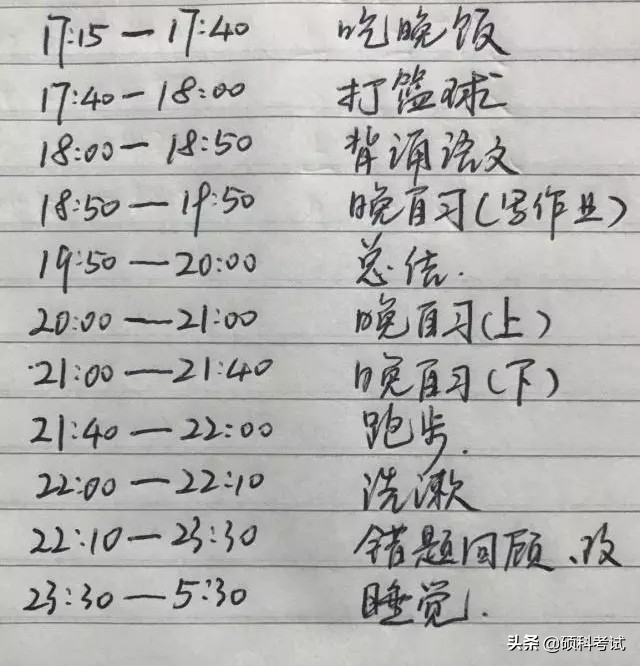 17:15 — 17:40 吃晚饭
17:40 — 18:00 打篮球
18:00 — 18:50 背诵语文
18:50 — 19:50 晚自习(写作业)
19:50 — 20:00 总结.
20:00 — 21:00 晚自习(上)
21:00 — 21:40 晚自习(下)
21:40 — 22:00 跑步.
22:00 — 22:10 洗漱
22:10 — 23:30 错题回顾、改
23:30 — 5:30 睡觉.
头条 @硕科考试